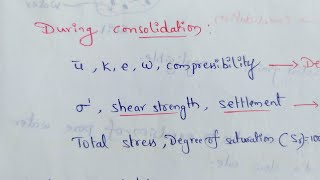 During consolidation:
ū, k, e, w, compressibility → De
σ', shear strength, settlement →
Total stress, Degree of saturation (Sr)=100